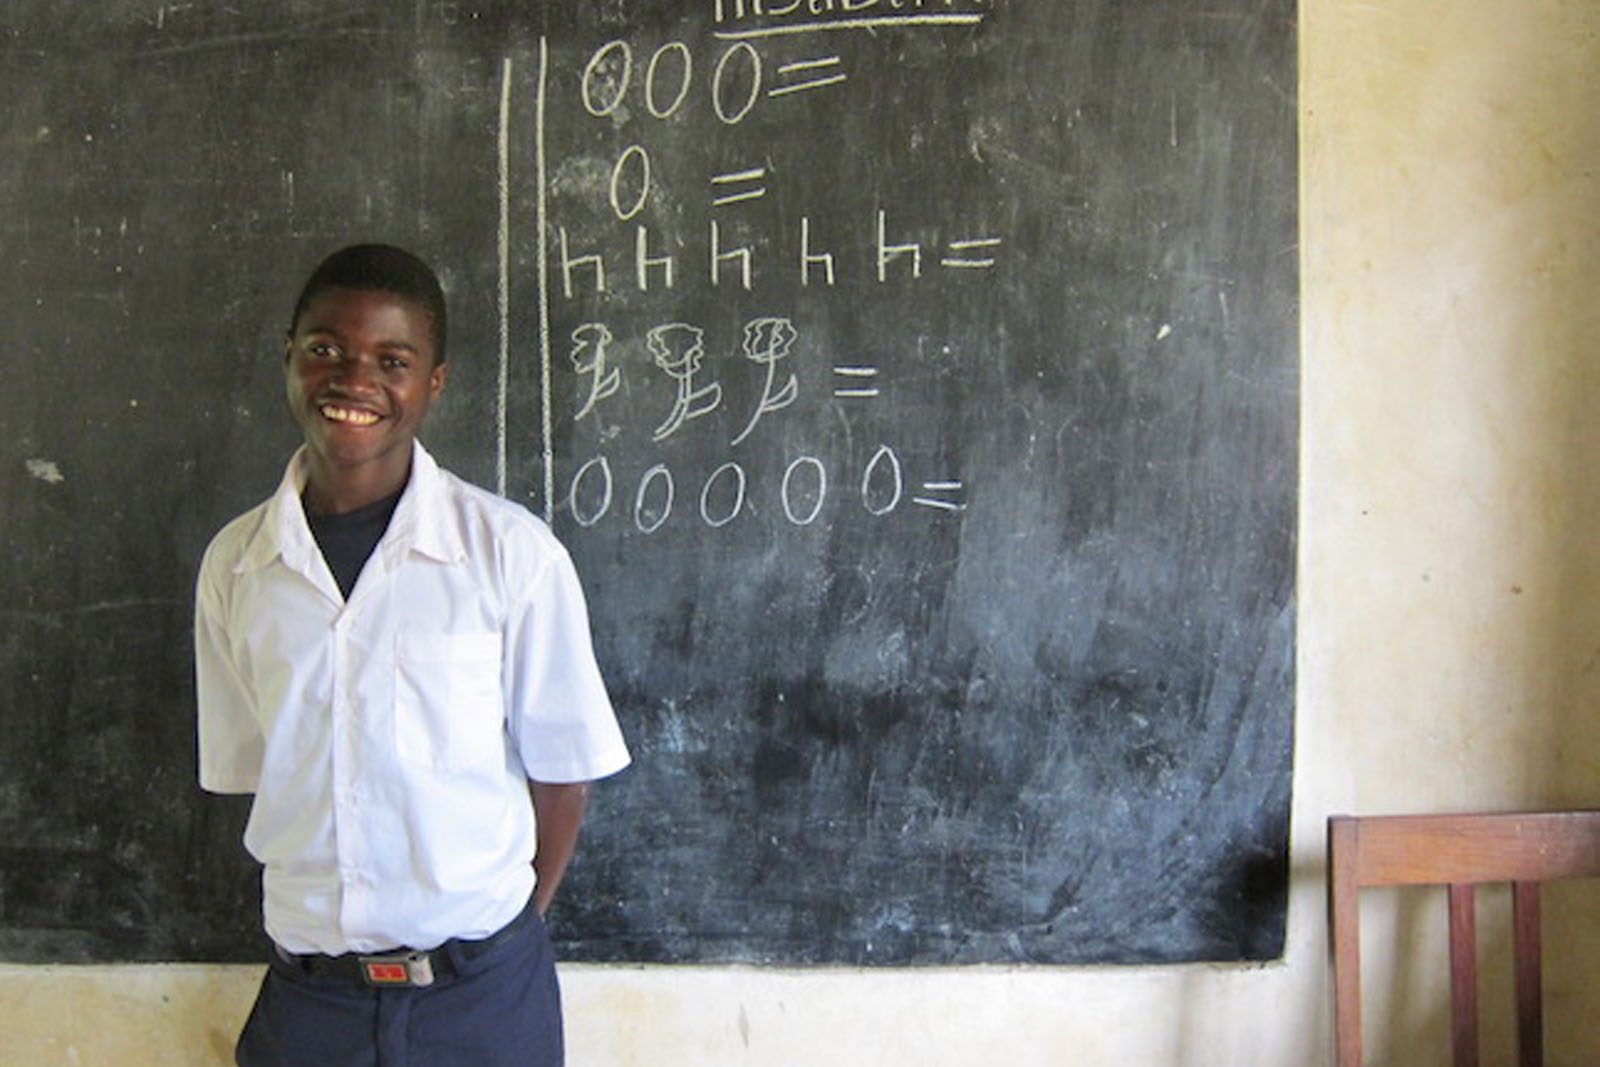 000=
0 =
h h h h h =
=
00000=